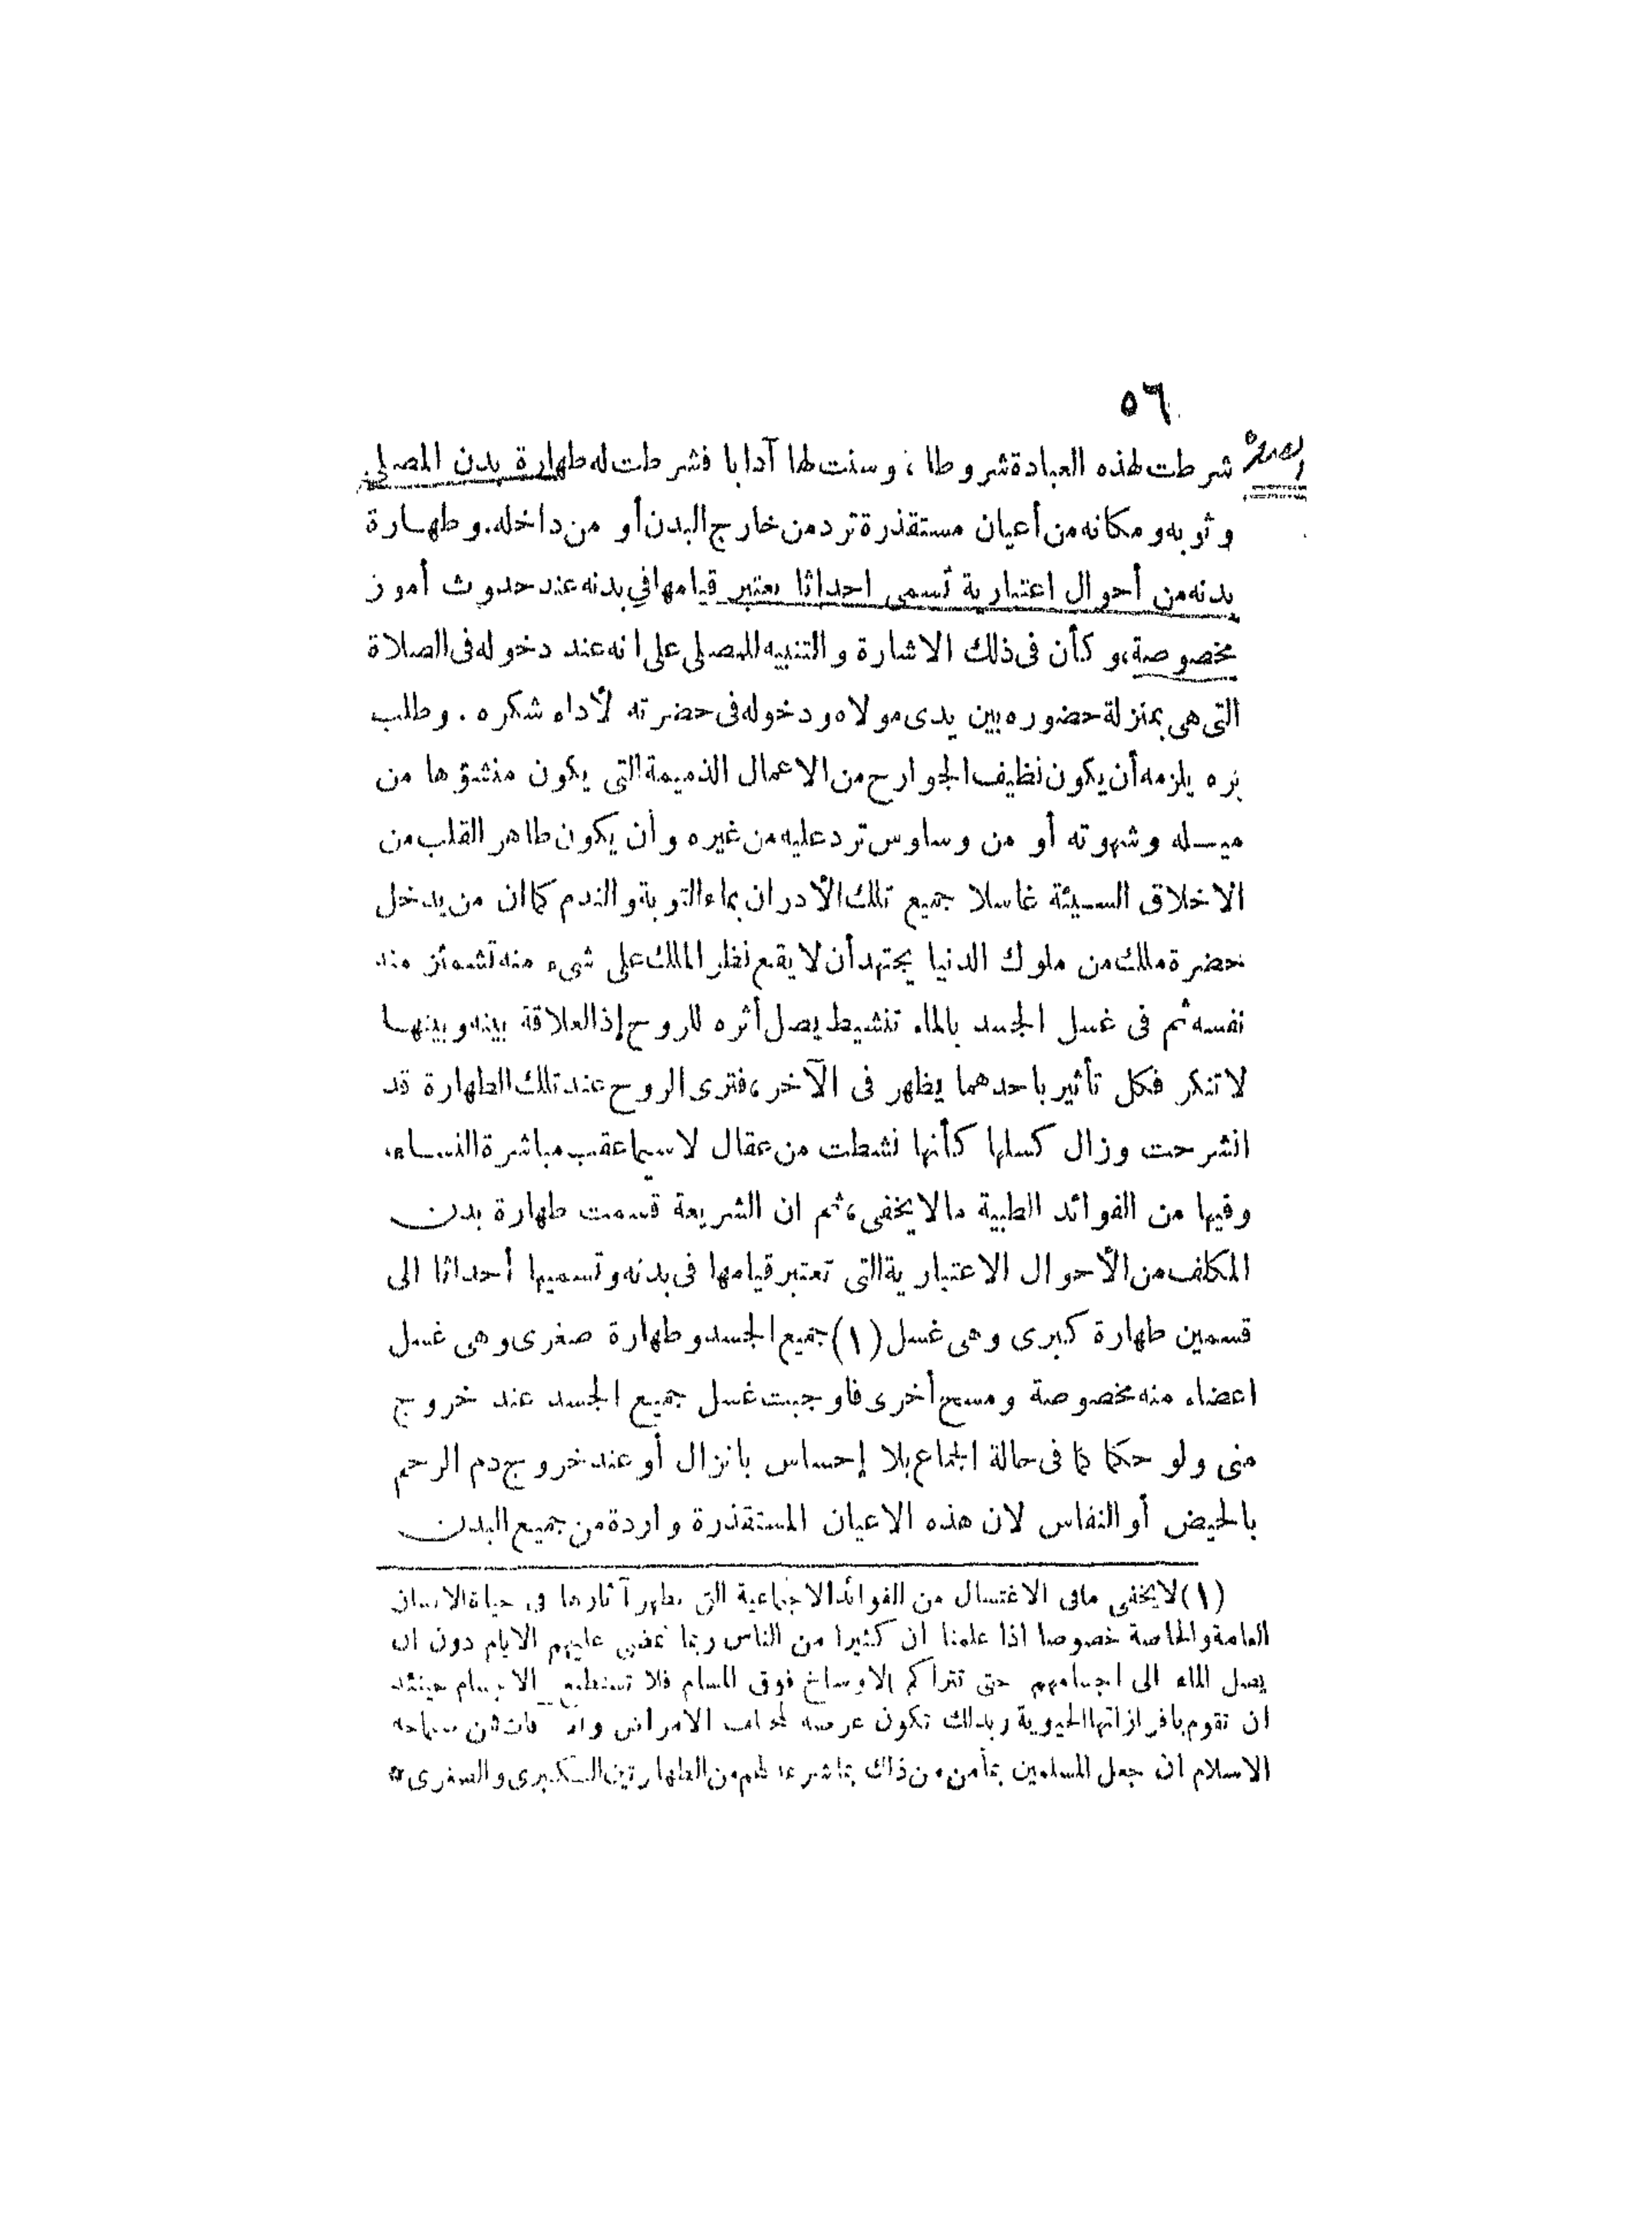 ٥٦
شرطت لهذه العبادة شروطا ، وسنت لها آدابا فشرطت له طهارة بدن المصلي
وثوبه ومكانه من أعيان مستقذرة ترد من خارج البدن أو من داخله. وطهارة
بدنه من أحوال اعتبارية تسمى احداثا يعتبر قيامها في بدنه عند حدوث أمور
مخصوصة، وكأن فى ذلك الاشارة والتنبيه للمصلى على انه عند دخوله فى الصلاة
التى هى بمنزلة حضوره بين يدى مولاه ودخوله فى حضرته لأداء شكره . وطلب
بره يلزمه أن يكون نظيف الجوارح من الاعمال الذميمة التى يكون منشؤها من
ميله وشهوته أو من وساوس ترد عليه من غيره وأن يكون طاهر القلب من
الاخلاق السيئة غاسلا جميع تلك الأدران بماء التوبة والندم كما ان من يدخل
حضرة ملك من ملوك الدنيا يجتهد أن لا يقع نظر الملك على شىء منه تشمئز منه
نفسه ثم فى غسل الجسد بالماء تنشيط يصل أثره للروح إذ العلاقة بينه وبينها
لا تنكر فكل تأثير باحدهما يظهر فى الآخر، فترى الروح عند تلك الطهارة قد
انشرحت وزال كسلها كأنها نشطت من عقال لا سيما عقب مباشرة النساء.
وفيها من الفوائد الطبية مالا يخفى، ثم ان الشريعة قسمت طهارة بدن
المكلف من الأحوال الاعتبارية التى تعتبر قيامها فى بدنه وتسميها أحداثا الى
قسمين طهارة كبرى وهى غسل (١) جميع الجسد وطهارة صغرى وهى غسل
اعضاء منه مخصوصة ومسح أخرى فاوجبت غسل جميع الجسد عند خروج
منى ولو حكما كما فى حالة الجماع بلا إحساس بانزال أو عند خروج دم الرحم
بالحيض أو النفاس لان هذه الاعيان المستقذرة واردة من جميع البدن
(١) لا يخفى مافى الاغتسال من الفوائد الاجتماعية التى تظهر آثارها فى حياة الانسان
العامة والخاصة خصوصا اذا علمنا ان كثيرا من الناس ربما تمضى عليهم الايام دون ان
يصل الماء الى اجسامهم حتى تتراكم الاوساخ فوق المسام فلا تستطيع الاجسام حينئذ
ان تقوم بافرازاتها الحيوية وبذلك تكون عرضة الامراض من سماحة
الاسلام ان جعل المسلمين بمأمن من ذاك بما شرعه لهم من الطهارتين الكبرى والصغرى